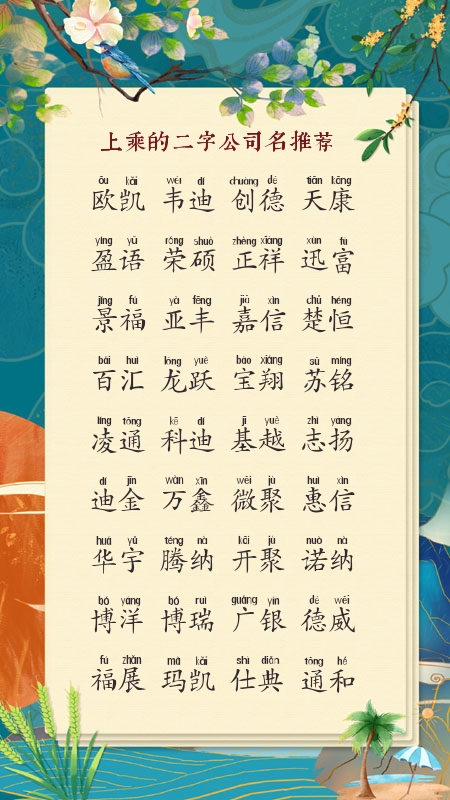 上乘的二字公司名推荐
ōu kǎi wéi dí chuàng dé tiān kāng
欧凯 韦迪 创德 天康
yíng yǔ róng shuò zhèng xiáng xùn fù
盈语 荣硕 正祥 迅富
jǐng fú yà fēng jiā xìn chǔ héng
景福 亚丰 嘉信 楚恒
bǎi huì lóng yuè bǎo xiáng sū míng
百汇 龙跃 宝翔 苏铭
líng tōng kē dí jī yuè zhì yáng
凌通 科迪 基越 志扬
dí jīn wàn xīn wēi jù huì xìn
迪金 万鑫 微聚 惠信
huá yǔ téng nà kāi jù nuò nà
华宇 腾纳 开聚 诺纳
bó yáng bó ruì guǎng yín dé wēi
博洋 博瑞 广银 德威
fú zhǎn mǎ kǎi shì diǎn tōng hé
福展 玛凯 仕典 通和